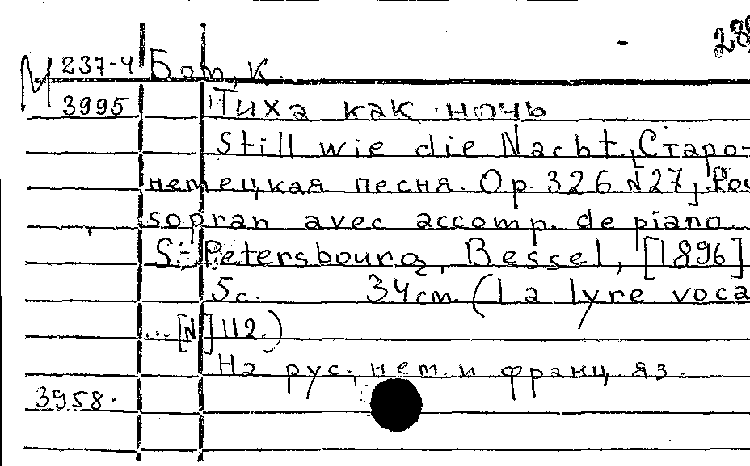 28
М 237-4 Бом, К.
3995 Тиха как ночь
Still wie die Nacht. [Старо-
немецкая песня. Op. 326 N 27]. Pou
sopran avec accomp. de piano.
S:-Petersbourg, Bessel, [1896]
5 с. 34 см. (La lyre voca
... [N] 112.)
На рус., нем. и франц. яз.
3958.